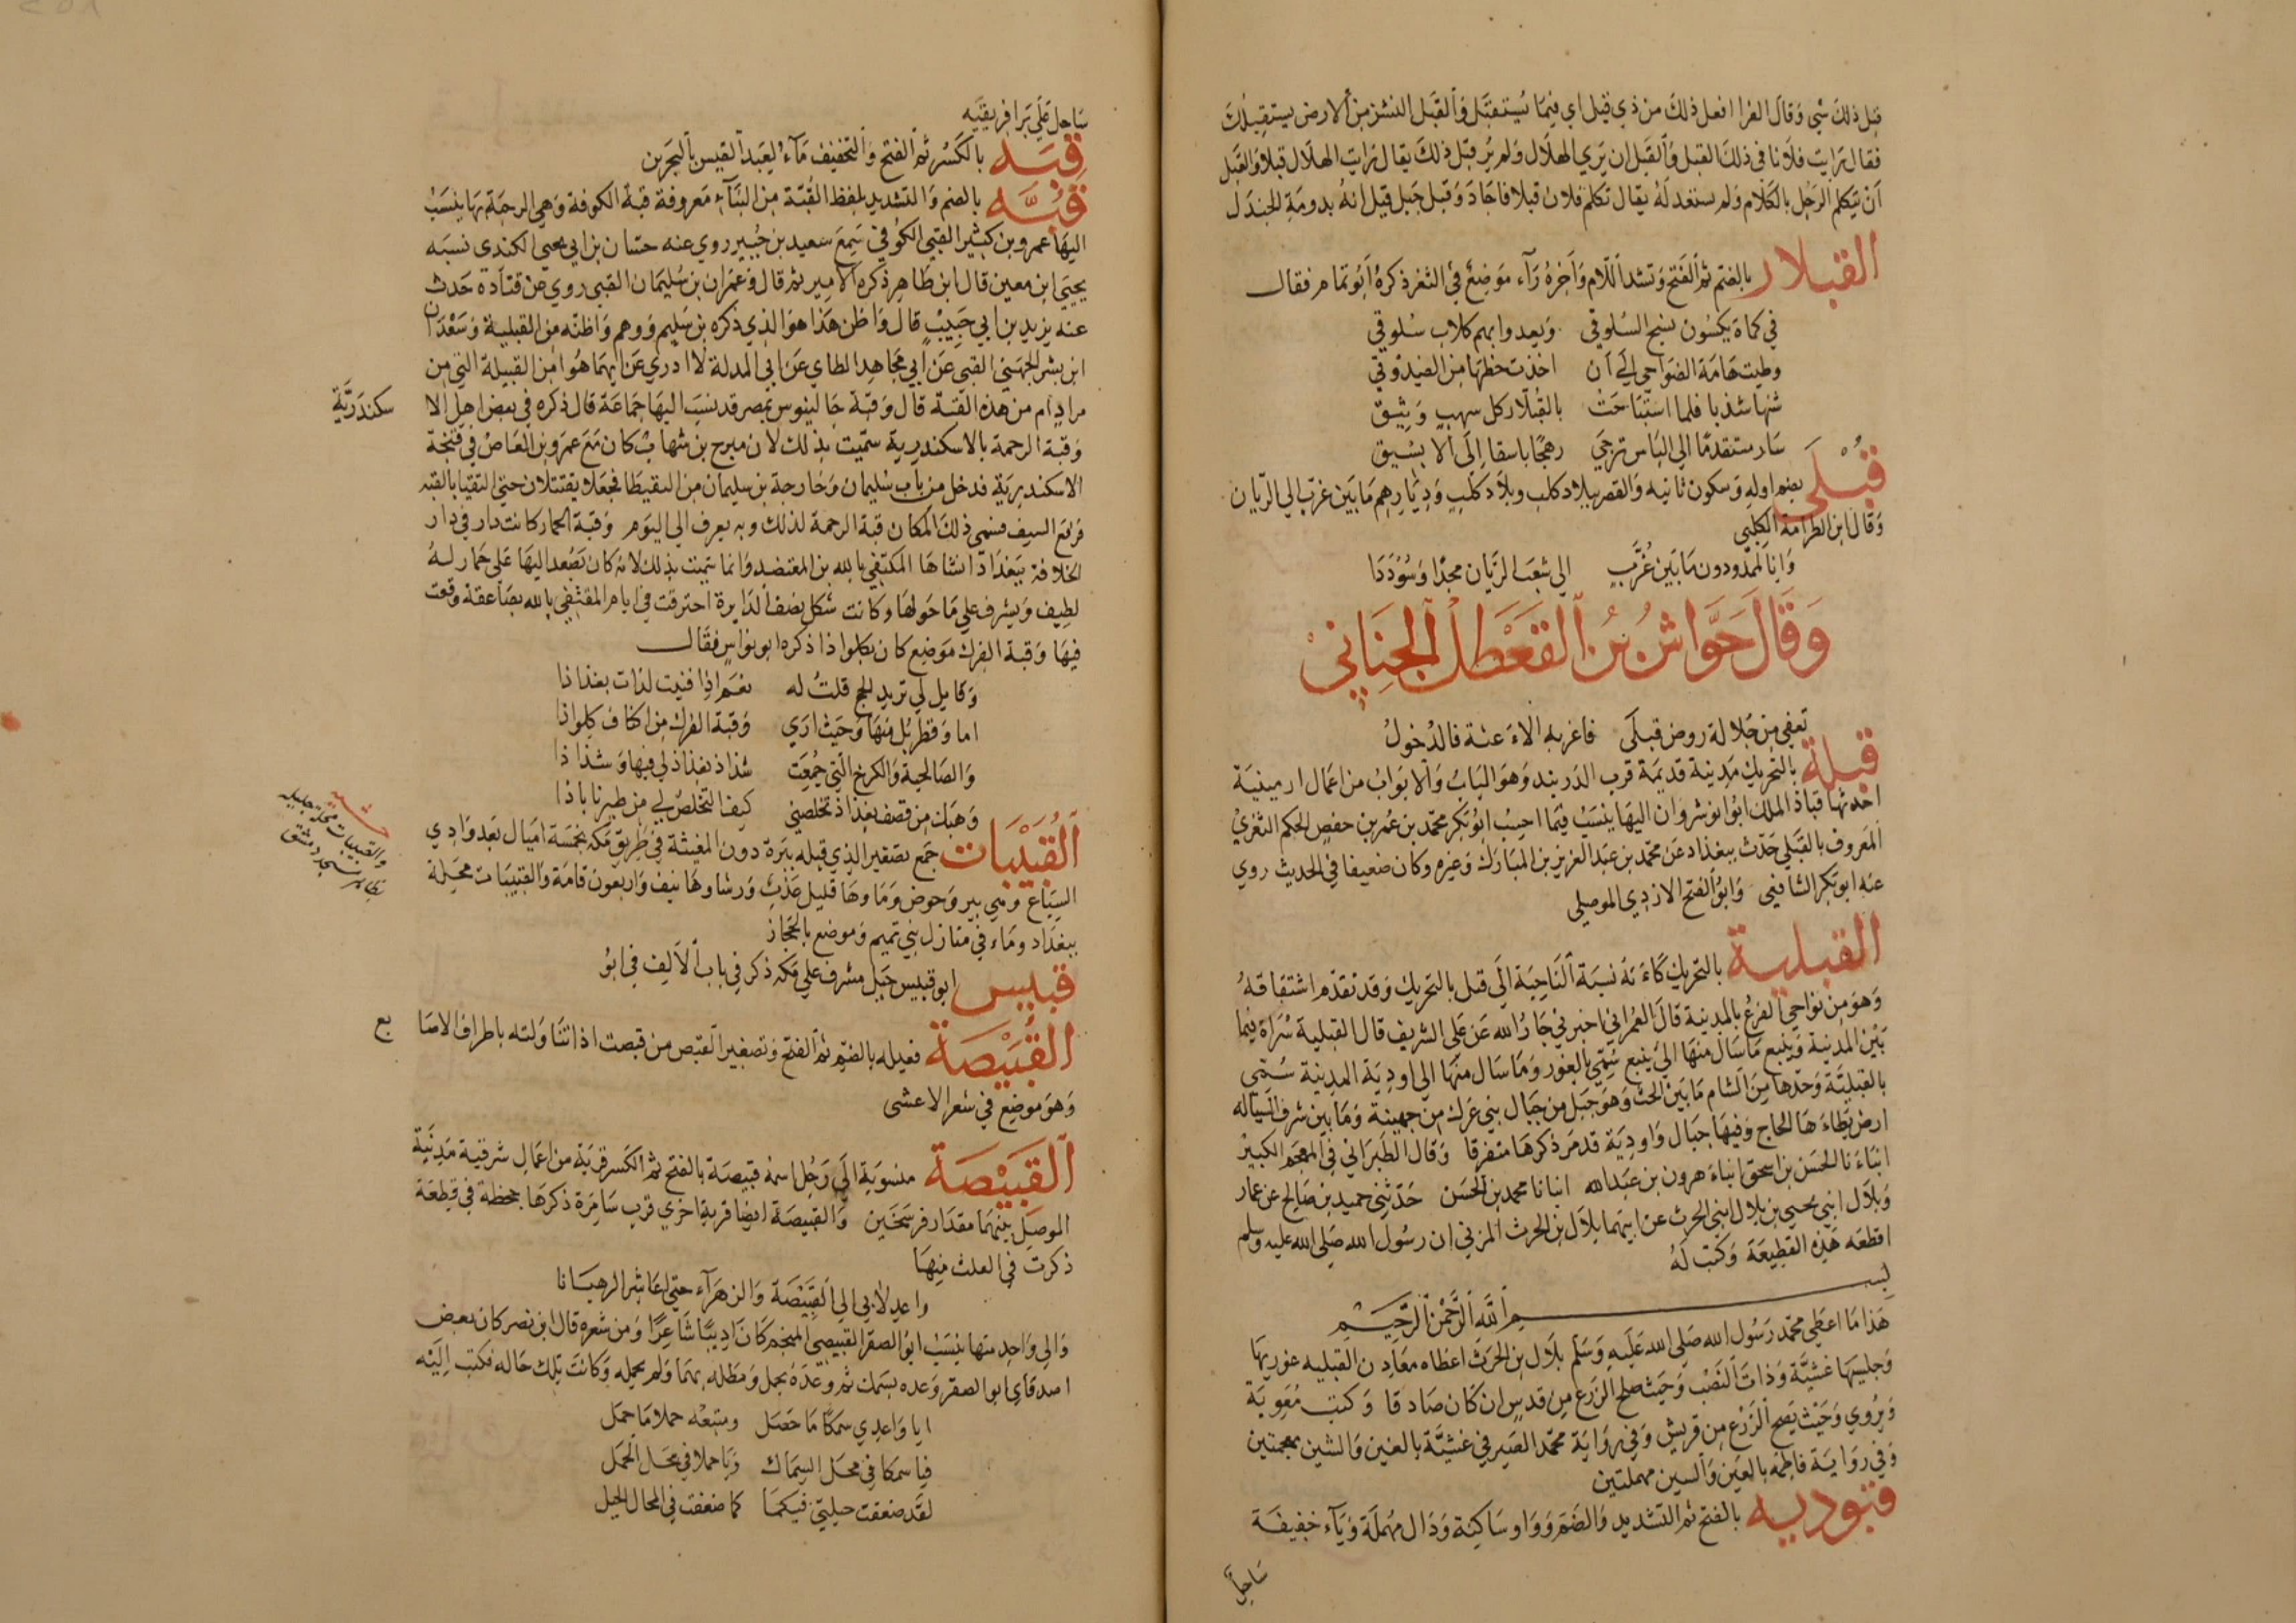 قبل ذلك شي وقال الفرا افعل ذلك من ذي قبل اي فيما يستقبل والقبل النشز من الارض يستقبلك
فقال رايت فلانا في ذلك القبل والقبل ان يري الهلال ولم ير قبل ذلك يقال رايت الهلال قبلا والقبل
ان يتكلم الرجل بالكلام ولم يستعد له يقال تكلم فلان قبلا فاجاد وقبل جبل قيل انه بدومة الجندل
القبلار بالضم ثم الفتح وتشد اللام واخره رآء موضع في الثغر ذكره ابو تمام فقال
في كماة يكسون نسج السلوقي ويعدوا بهم كلاب سلوقي
وطيت هامة الضواحي الي ان اخذت حظها من الفيدوقي
شنها شذبا فلما استباحت بالقبلار كل سهب ونيق
سار مستقدما الي الباس تزجي رهجا باسقا الي الابسيق
قبلى بضم اوله وسكون ثانيه والقصر ببلاد كلب وبلاد كلب وديارهم مابين غرب الي الريان
وقال ابن الطرامة الكلبي
وانا لممدودون مابين غرب الي شعب الريان مجدا وسوددا
وقال حواش بن القعطل الجناني
تعفي من جلالة روض قبلى فاغريه الاءعنة فالدخول
قبلة بالتحريك مدينة قديمة قرب الدربند وهو الباب والابواب من اعمال ارمينية
احدثها قباذ الملك ابو انوشروان اليها ينسب فيما احسب ابو بكر محمد بن عمر بن حفص الحكم الثغري
المعروف بالقبلي حدث ببغداد عن محمد بن عبد العزيز بن المبارك وغيره وكان ضعيفا في الحديث روي
عنه ابو بكر الشافعي وابو الفتح الازدي الموصلي
القبلية بالتحريك كاءنه نسبة الناحية الي قبل بالتحريك وقد تقدم اشتقاقه
وهو من نواحي الفرع بالمدينة قال العمراني اخبرني جار الله عن علي الشريف قال القبلية سراة فيما
بين المدينة وينبع ماسال منها الي ينبع سمي بالغور وماسال منها الي اودية المدينة سمي
بالقبلية وحدها من الشام مابين الحث وهو جبل من جبال بني عرك من جهينة ومابين شرف السيالة
ارض يطاءها الحاج وفيها جبال واودية قد مر ذكرها متفرقا وقال الطبراني في المعجم الكبير
انباءنا الحسن بن اسحق انباء هرون بن عبد الله انبانا محمد بن الحسن حدثني حميد بن صالح عن عمار
وبلال ابني يحيي بن بلال ابني الحرث عن ابيهما بلال بن الحرث المزني ان رسول الله صلي الله عليه وسلم
اقطعه هذه القطيعة وكتب له
بسم الله الرحمن الرحيم
هذا ما اعطي محمد رسول الله صلي الله عليه وسلم بلال بن الحرث اعطاه معادن القبليه غوريها
وجلسيها غشية وذات النصب وحيث صلح الزرع من قدس ان كان صادقا وكتب معوية
ويروي وحيث يصح الزرع من قريش وفي رواية محمد الصير في غشية بالغين والشين معجمتين
وفي رواية فاطمة بالعين والسين مهملتين
قبوديه بالفتح ثم التشديد والضم وواو ساكنة ودال مهملة ويآء خفيفة
ساحل
ساحل علي بر افريقيه
قبه بالكسر ثم الفتح والتخفيف مآء لعبد القيس بالبحرين
قبه بالضم والتشديد بلفظ القبة من البنآء معروفة قبة الكوفة وهي الرحبة بها ينسب
اليها عمرو بن كثير القبي الكوفي سمع سعيد بن جبير روي عنه حسان بن ابي يحيي الكندي نسبه
يحيي ابن معين قال ابن طاهر ذكره الامير ثم قال وعمران بن سليمان القبي روي عن قتادة حدث
عنه يزيد بن ابي حبيب قال واظن هذا هو الذي ذكره بن سليم ووهم واظنه من القبيلة وسعدان
ابن بشر الجهني القبي عن ابي مجاهد الطاي عن ابي المدلة لا ادري عن ايهما هو امن القبيلة التي من
مراد ام من هذه القبة قال وقبة جالينوس بمصر قد نسب اليها جماعة قال ذكره في بعض اهل الا
سكندرية
وقبة الرحمة بالاسكندرية سميت بذلك لان مبرح بن شهاب كان مع عمرو بن العاص في فتحة
الاسكندرية فدخل من باب سليمان وخارجة بن سليمان من البقيطا فجعلا يقتتلان حتي التقيا بالقبة
فرفع السيف فسمي ذلك المكان قبة الرحمة لذلك وبه يعرف الي اليوم وقبة الحمار كانت دار في دار
الخلافة ببغداد انشاها المكتفي بالله بن المعتضد وانما سميت بذلك لانه كان يصعد اليها علي حمار له
لطيف ويشرف علي ماحولها وكانت شكل نصف الدايرة احترقت في ايام المقتفي بالله بصاعقة وقعت
فيها وقبة الفرك موضع كان بكلواذا ذكره ابو نواس فقال
وقايل لي تريد الحج قلت له نعم اذا فنيت لذات بغذاذا
اما وقطربل منها وحيث اري وقبة الفرك من اكناف كلواذا
والصالحية والكرخ التي جمعت شذاذ بغذاذ لي فيها وشذاذا
وهبك من قصف بغذاذ تخلصني كيف التخلص لي من طيرناباذا
القبيبات جمع تصغير الذي قبله بئرة دون المغيثة في طريق مكه بخمسة اميال بعد وادي
السباع ومي بير وحوض وماوها قليل عذب ورشاوها نيف واربعون قامة والقبيبات محيلة
ببغداد وماء في منازل بني تميم وموضع بالحجاز
والقبيبات محلة جليله
بظاهر مسجد دمشق
قبيس ابو قبيس جبل مشرف علي مكه ذكر في باب الالف في ابو
القبيصة فعيله بالضم ثم الفتح وتصغير القبص من قبصت اذا تناولته باطراف الاصا
بع
وهو موضع في شعر الاعشى
القبيصة منسوبة الي رجل اسمه قبيصة بالفتح ثم الكسر قرية من اعمال شرقية مدينة
الموصل بينهما مقدار فرسخين والقبيصة ايضا قرية اخري قرب سامرة ذكرها جحظة في قطعة
ذكرت في العلث منها
واعدلا بي الي القبيصة والزهرآء حتي اعاشر الرهبانا
والي واحد منها ينسب ابو الصقر القبيصي المنجم كان اديبا شاعرا ومن شعره قال ابن نصر كان بعض
اصدقاي ابو الصقر وعده بسمك ثم وعده بجمل ومطله بهما ولم يحمله وكانت تلك حاله فكتب اليه
ايا واعدي سمكا ما حصل ومتبعه حملا ما حمل
فيا سمكا في محل السماك ويا حملا في محل الحمل
لقد ضعفت حيلتي فيكما كما ضعفت في المحال الحيل